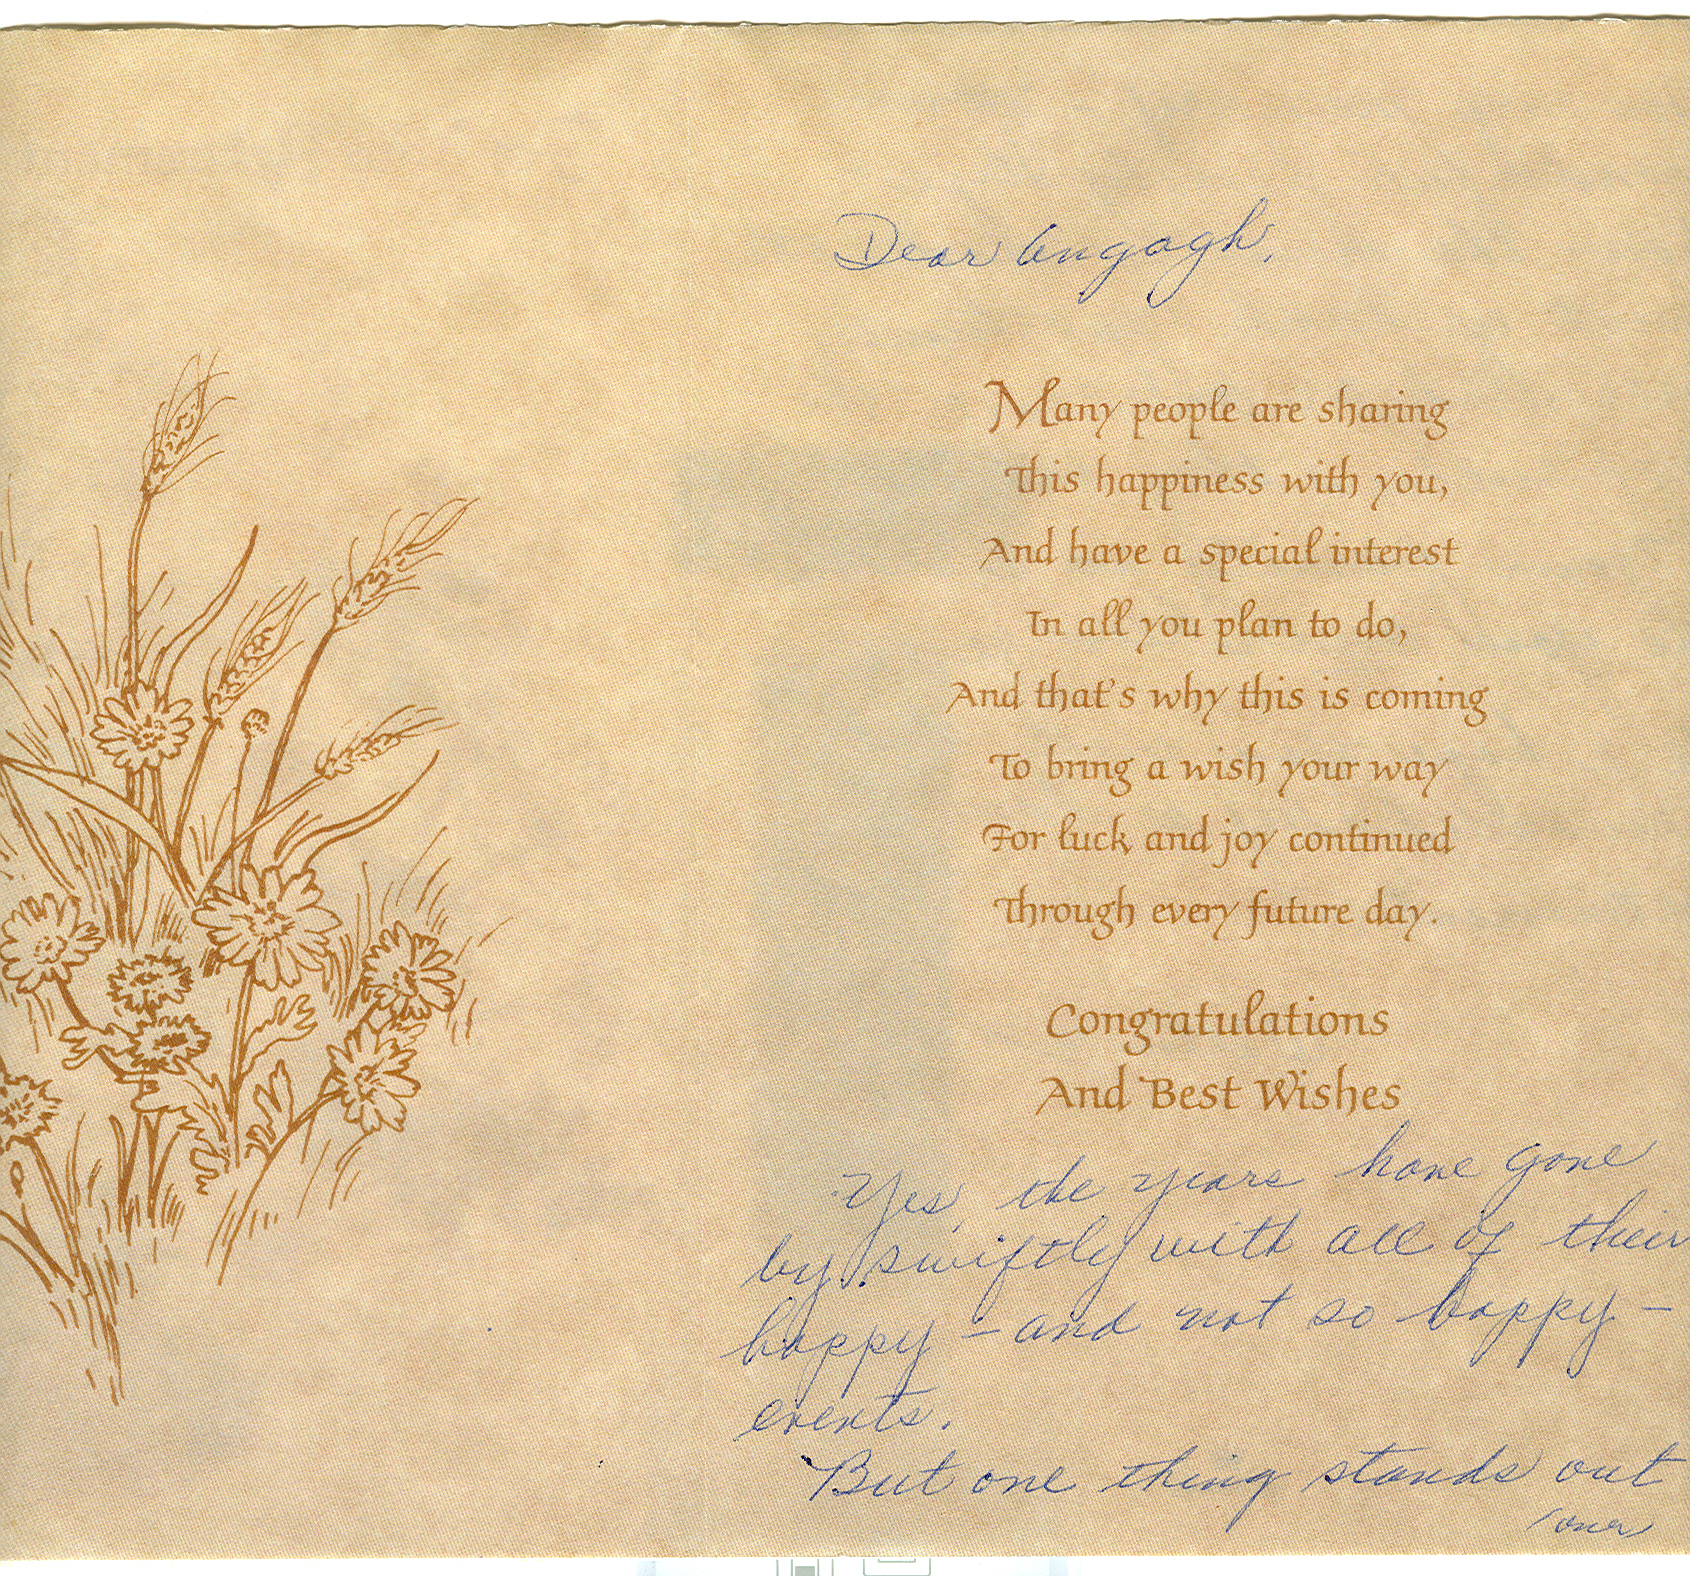 Dear Angagh,
Many people are sharing
This happiness with you,
And have a special interest
In all you plan to do,
And that's why this is coming
To bring a wish your way
For luck and joy continued
Through every future day.
Congratulations
And Best Wishes
Yes, the years have gone
by swiftly with all of their
happy – and not so happy –
events.
But one thing stands out
(over